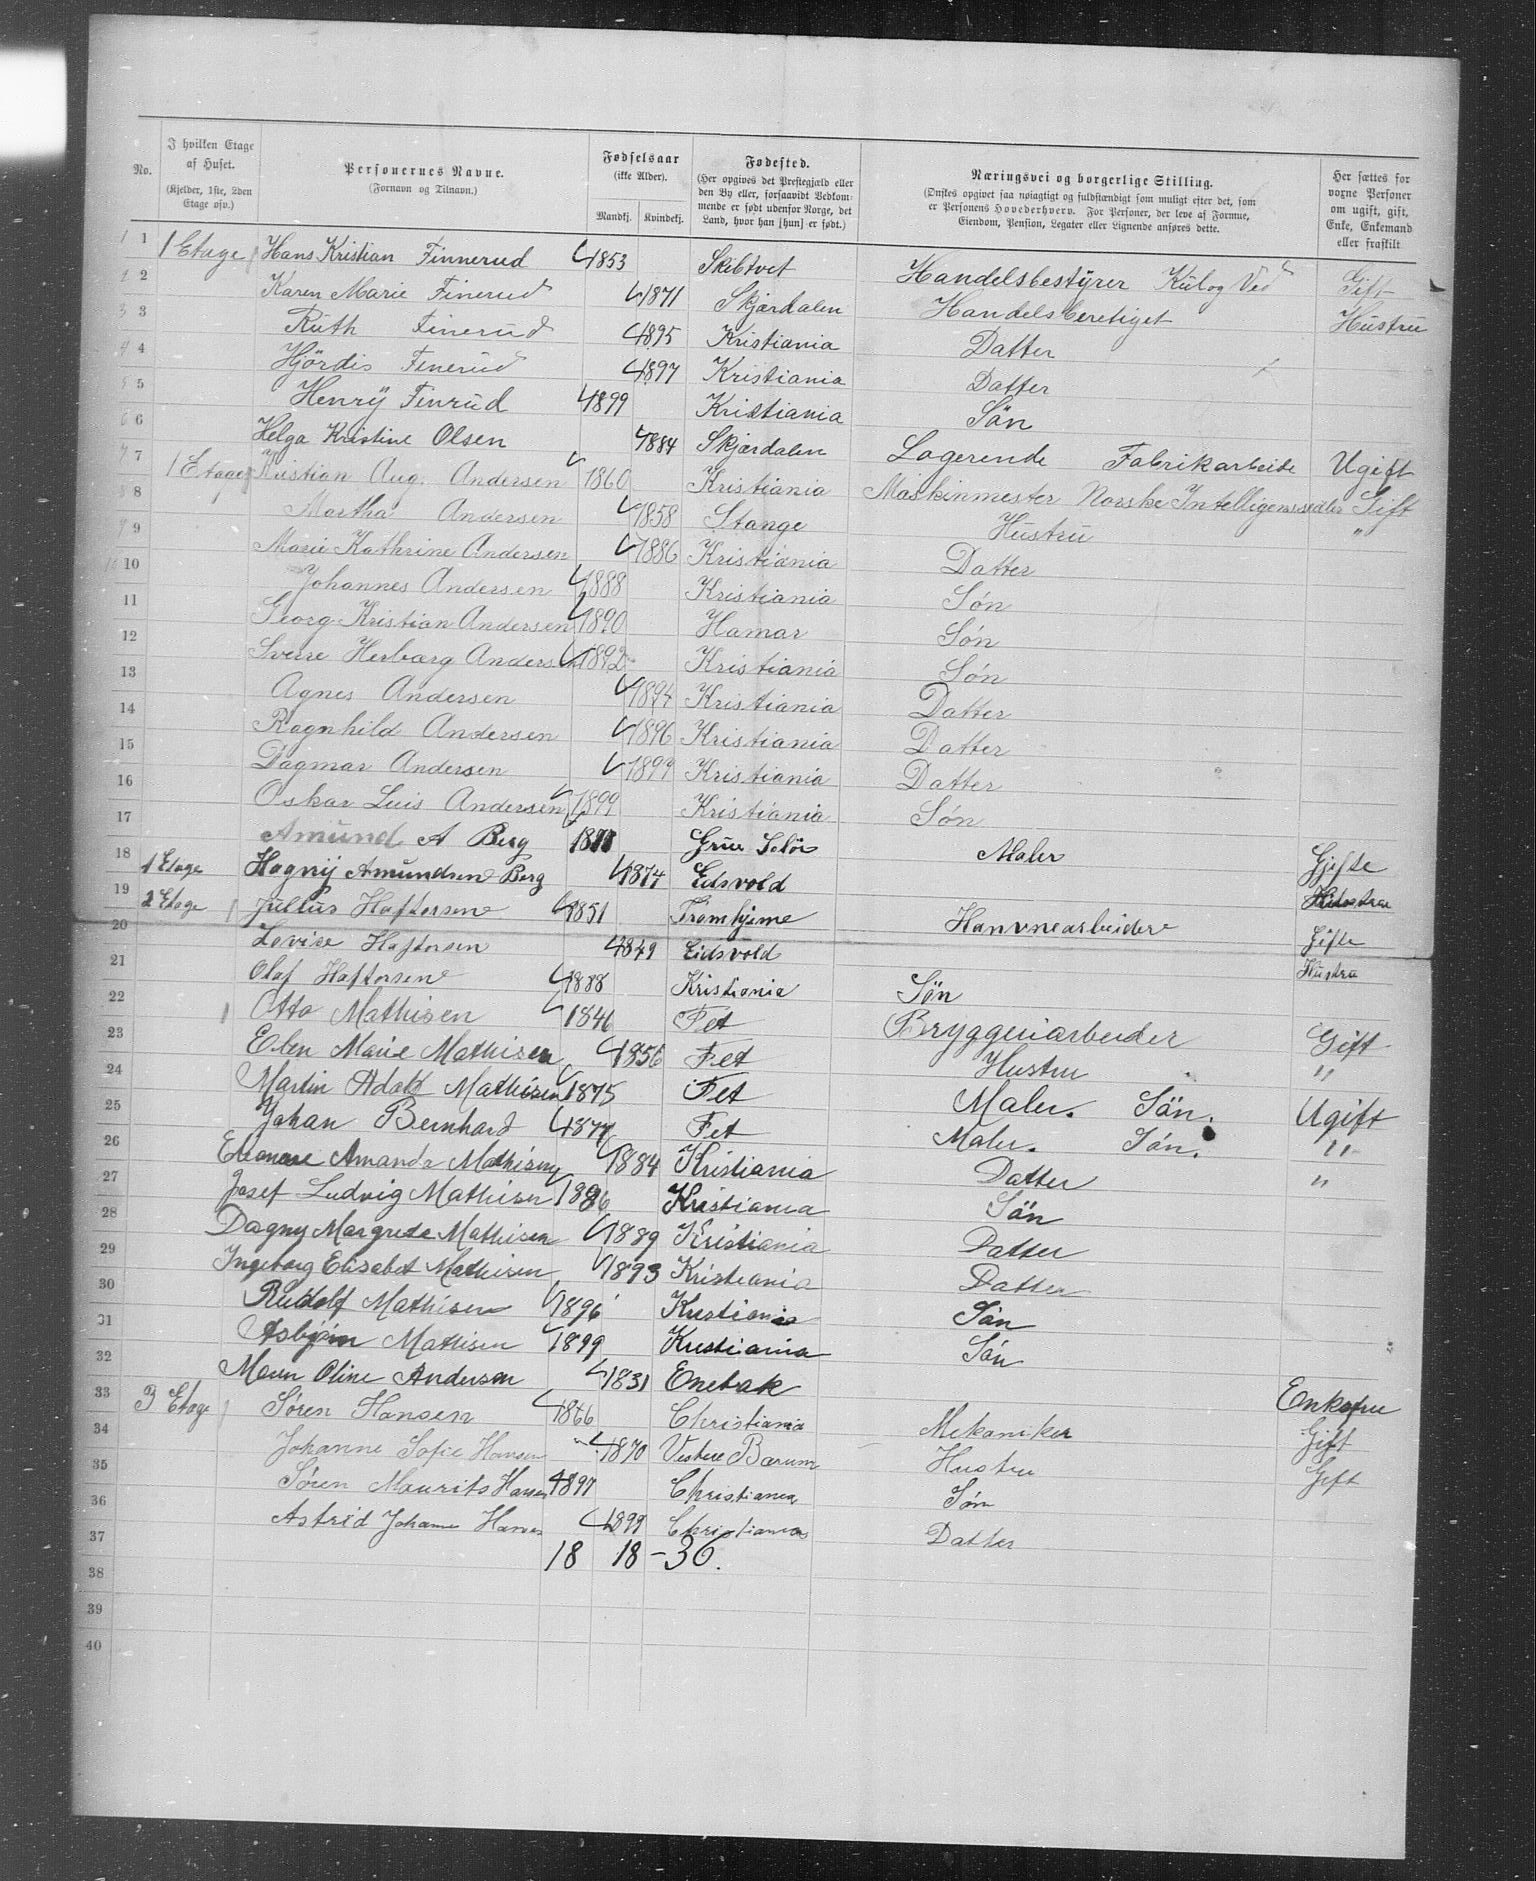 No. | I hvilken Etage af Huset. (Kjelder, 1ste, 2den Etage osv.) | Personernes Navne. (Fornavn og Tilnavn.) | Fødselsaar (ikke Alder). Mandkj. Kvindekj. | Fødested. (Her opgives det Prestegjæld eller den By eller, forsaavidt Vedkommende er født udenfor Norge, det Land, hvor han [hun] er født.) | Næringsvei og borgerlige Stilling. (Ønskes opgivet saa nøiagtigt og fuldstændigt som muligt efter det, som er Personens Hovederhverv. For Personer, der leve af Formue, Eiendom, Pension, Legater eller Lignende anføres dette. | Her sættes for voxne Personer om ugift, gift, Enke, Enkemand eller fraskilt
1 1 Etage Hans Kristian Finnerud 1853 Skibtvet Handelsbestyrer Kul og Ved Gift
2 Karen Marie Finerud 1871 Skjærdalen Handelsberetiget Hustru
3 Ruth Finerud 1895 Kristiania Datter
4 Hjördis Finerud 1897 Kristiania Datter
5 Henrÿ Finrud 1899 Kristiania Sön
6 Helga Kristine Olsen 1884 Skjærdalen Logerende Fabrikarbeide Ugift
7 1 Etage Kristian Aug. Andersen 1860 Kristiania Maskinmester Norske Intelligenssedler Gift
8 Martha Andersen 1858 Stange Hustru "
9 Marie Kathrine Andersen 1886 Kristiania Datter
10 Johannes Andersen 1888 Kristiania Søn
11 Georg Kristian Andersen 1890 Hamar Søn
12 Sverre Herbarg Andersen 1892 Kristiania Søn
13 Agnes Andersen 1894 Kristiania Datter
14 Ragnhild Andersen 1896 Kristiania Datter
15 Dagmar Andersen 1897 Kristiania Datter
16 Oskar Luis Andersen 1899 Kristiania Søn
17 Amund A Berg Grue Solör Maler Gjefte
18 1 Etage Hagny Amundsen Berg 1874 Eidsvold Hustrue
19 2 Etage Julius Haftorsen 1851 Tromhjems Havnearbeider Gifte
20 Lovise Haftorsen 1849 Eidsvold Hustru
21 Olaf Haftorsen 1888 Kristiania Sön
22 Otto Mathisen 1846 Fet Bryggeriarbeider Gift
23 Elen Marie Mathisen 1856 Fet Hustru "
24 Martin Adolf Mathisen 1875 Fet Maler. Sön. Ugift
25 Johan Bernhard 1877 Fet Maler. Sön. "
26 Eleonore Amanda Mathisen 1884 Kristiania Datter "
27 Josef Ludvig Mathisen 1886 Kristiania Sön
28 Dagny Margrede Mathisen 1889 Kristiania Datter
29 Ingeborg Elisabet Mathisen 1893 Kristiania Datter
30 Rudolf Mathisen 1896 Kristiania Sön
31 Asbjørn Mathisen 1899 Kristiania Sön
32 Maren Oline Anderson 1831 Enebak Enkefru
33 3 Etage Søren Hansen 1866 Christiania Mekaniker Gift
34 Johanne Sofie Hansen 1870 Vestere Bærum Hustru Gift
35 Søren Maurits Hansen 1897 Christiania Søn
36 Astrid Johanne Hansen 1899 Christiania Datter
37 18 18 - 36.
38
39
40